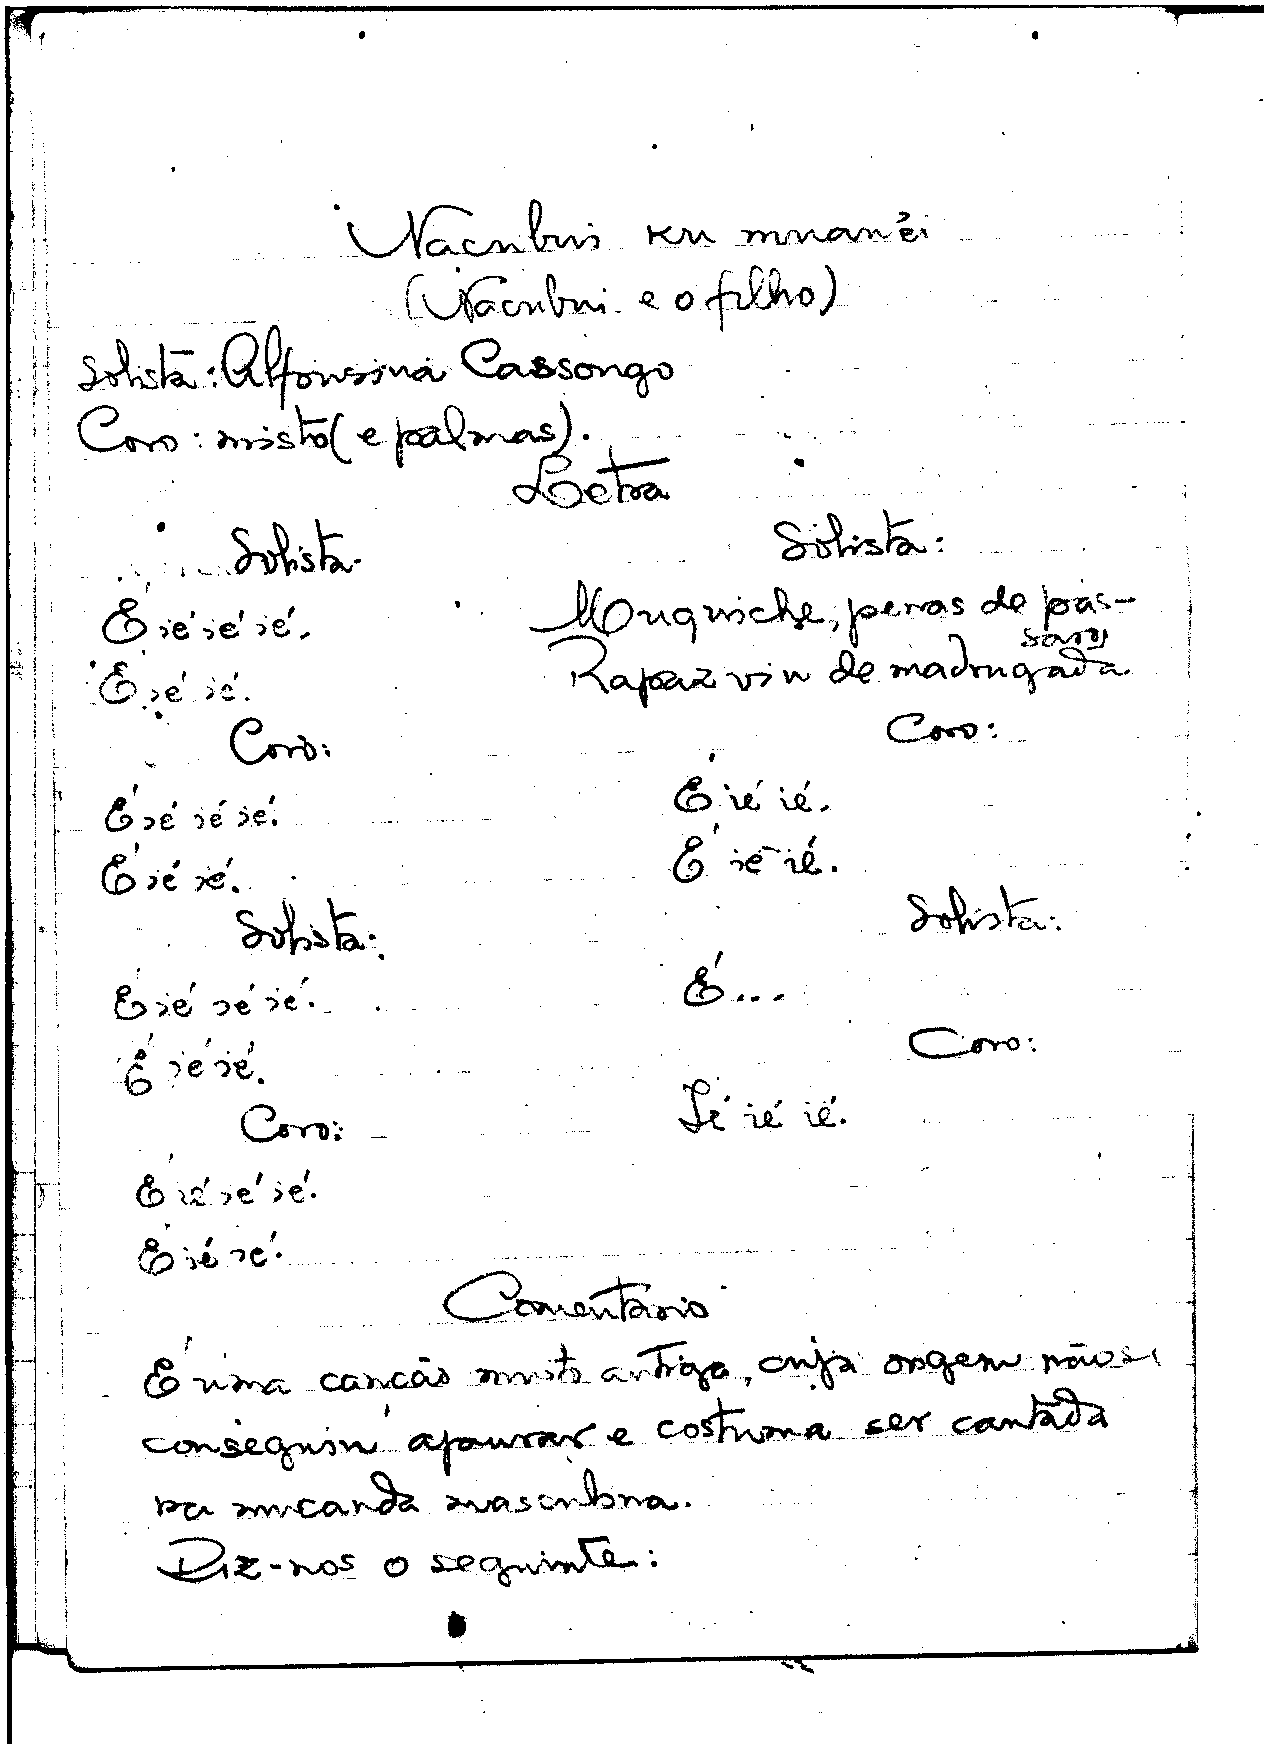 Nacubui ku muan'éi
(Nacubui e o filho)
Solista: Alfonsina Cassongo
Coro: misto (e palmas).
Letra
Solista.
É ié ié ié.
É ié ié.
Coro:
É ié ié ié.
É ié ié.
Solista:
É ié ié ié.
É ié ié.
Coro:
É ié ié ié.
É ié ié.
Solista:
Muquiche, penas de pás-
saros
Rapaz viu de madrugada.
Coro:
É ié ié.
É ié ié.
Solista:
É...
Coro:
Ié ié ié.
Comentário
É uma canção muito antiga, cuja origem não se
conseguiu apurar e costuma ser cantada
na mucanda masculina.
Diz-nos o seguinte: